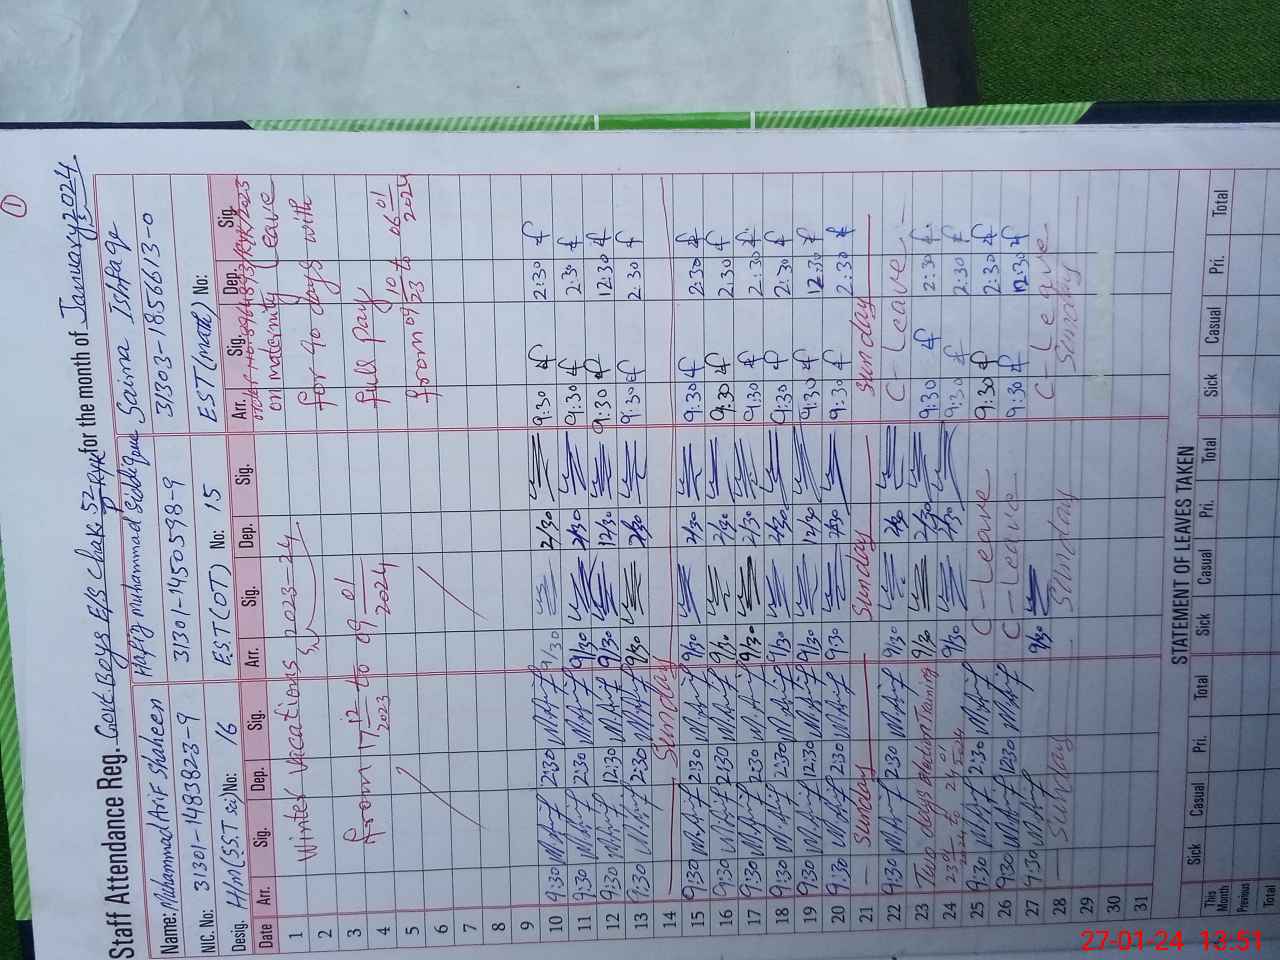 ①
Staff Attendance Reg. Govt. Boys E/S Chak 52/P RYK for the month of January 2024.
Name: Muhammad Arif Shaheen Hafiz Muhammad Siddique Saima Ishfaqe
NIC. No: 31301-1483823-9 31301-1450598-9 31303-1856613-0
Desig. H/M(SST sci) No: 16 EST(OT) No: 15 EST(math) No:
Date Arr. Sig. Dep. Sig. Arr. Sig. Dep. Sig. Arr. Sig. Dep. Sig.
1 Winter Vacations 2023-24 on maternity Leave
2 for 90 days with
3 From 17 12/2023 to 09 01/2024
4 full pay
5 from 09 10/23 to 06 01/2024
6
7
8
9
10 9:30 2:30 9/30 2/30 9:30 2:30
11 9:30 2:30 9/30 2/30 9:30 2:30
12 9:30 12:30 9/30 12/30 9:30 12:30
13 9:30 2:30 9/30 2/30 9:30 2:30
14 Sunday
15 9:30 2:30 9/30 2/30 9:30 2:30
16 9:30 2:30 9/30 2/30 9:30 2:30
17 9:30 2:30 9/30 2/30 9:30 2:30
18 9:30 2:30 9/30 2/30 9:30 2:30
19 9:30 12:30 9/30 12/30 9:30 12:30
20 9:30 2:30 9:30 2/30 9:30 2:30
21 Sunday Sunday Sunday
22 9:30 2:30 9/30 2/30 C-Leave
23 Two days Election Training 9/30 2/30 9:30 2:30
24 23 01/2024 to 24 01/2024 9/30 2/30 9:30 2:30
25 9:30 2:30 C-Leave 9:30 2:30
26 9:30 12:30 C-Leave 9:30 12:30
27 9:30 9/30 C-Leave
28 Sunday Sunday Sunday
29
30
31
STATEMENT OF LEAVES TAKEN
Sick Casual Pri. Total Sick Casual Pri. Total Sick Casual Pri. Total
This Month
Previous
Total
27-01-24 13:51